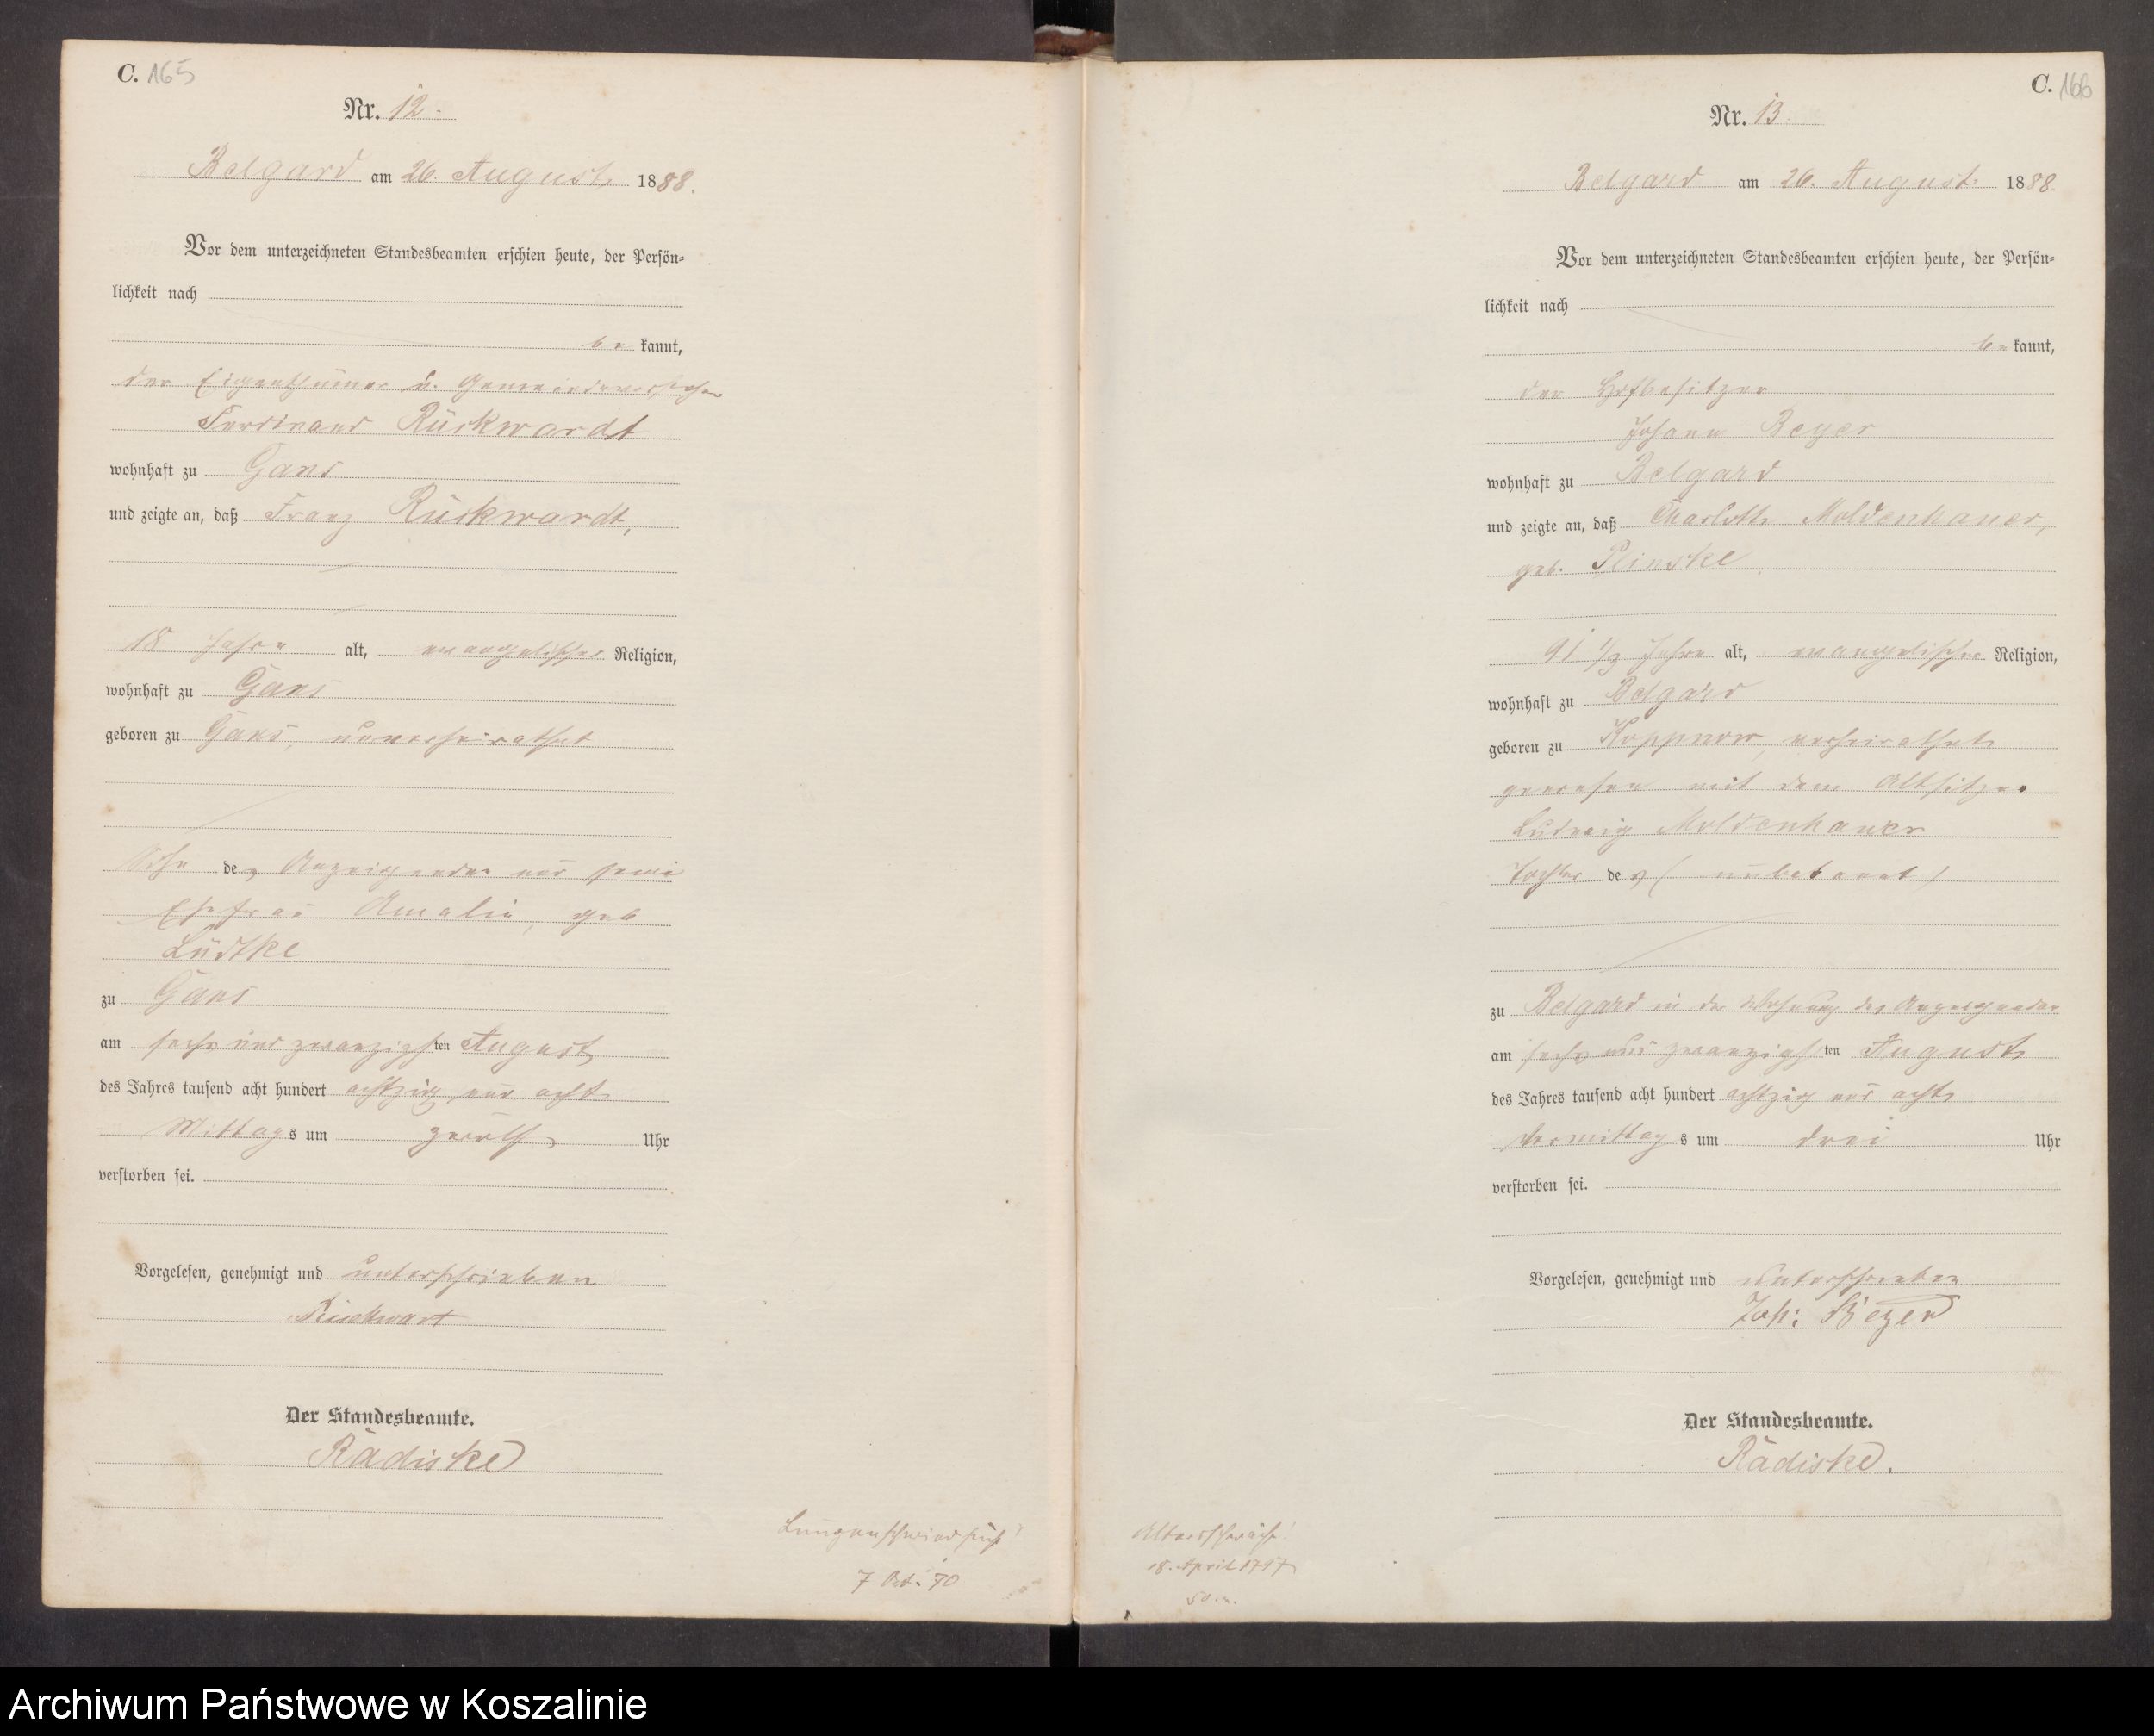 C. 165
Nr. 12.
Belgard am 26. August 1888.
Vor dem unterzeichneten Standesbeamten erschien heute, der Persön-
lichkeit nach
be kannt,
der Eigenthümer u. Gemeindevorsteher
Ferdinand Rückwardt
wohnhaft zu Gans
und zeigte an, daß Franz Rückwardt,
18 Jahre alt, evangelischer Religion,
wohnhaft zu Gans
geboren zu Gans, unverheirathet
Sohn des Anzeigenden und seine
Ehefrau Amalie, geb
Lüdtke
zu Gans
am sechs und zwanzigsten August
des Jahres tausend acht hundert achtzig und acht
Mittags um zwölf Uhr
verstorben sei.
Vorgelesen, genehmigt und unterschrieben
Rückwart
Der Standesbeamte.
Rädiske
Lungenschwindsucht
7 Oct. 70
C. 166
Nr. 13.
Belgard am 26. August. 1888
Vor dem unterzeichneten Standesbeamten erschien heute, der Persön-
lichkeit nach
be kannt,
der Hofbesitzer
Johann Beyer
wohnhaft zu Belgard
und zeigte an, daß Charlotte Moldenhauer,
geb. Plinske
91 1/2 Jahre alt, evangelischer Religion,
wohnhaft zu Belgard
geboren zu Koppnow, verheirathet
gewesen mit dem Altsitzer
Ludwig Moldenhauer
Tochter des (unbekannt)
zu Belgard in der Wohnung des Anzeigenden
am sechs und zwanzigsten August
des Jahres tausend acht hundert achtzig und acht
Vormittags um drei Uhr
verstorben sei.
Vorgelesen, genehmigt und unterschrieben
Joh: Beyer
Der Standesbeamte.
Rädiske.
Altersschwäche!
18. April 1797
Archiwum Państwowe w Koszalinie